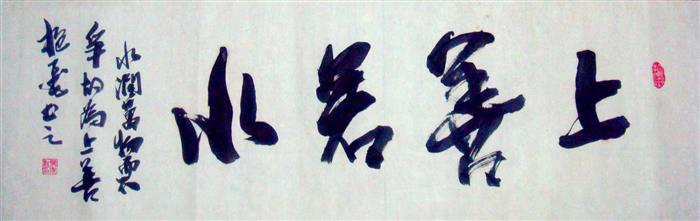 上善若水
水润万物而不
争故为上善
书之